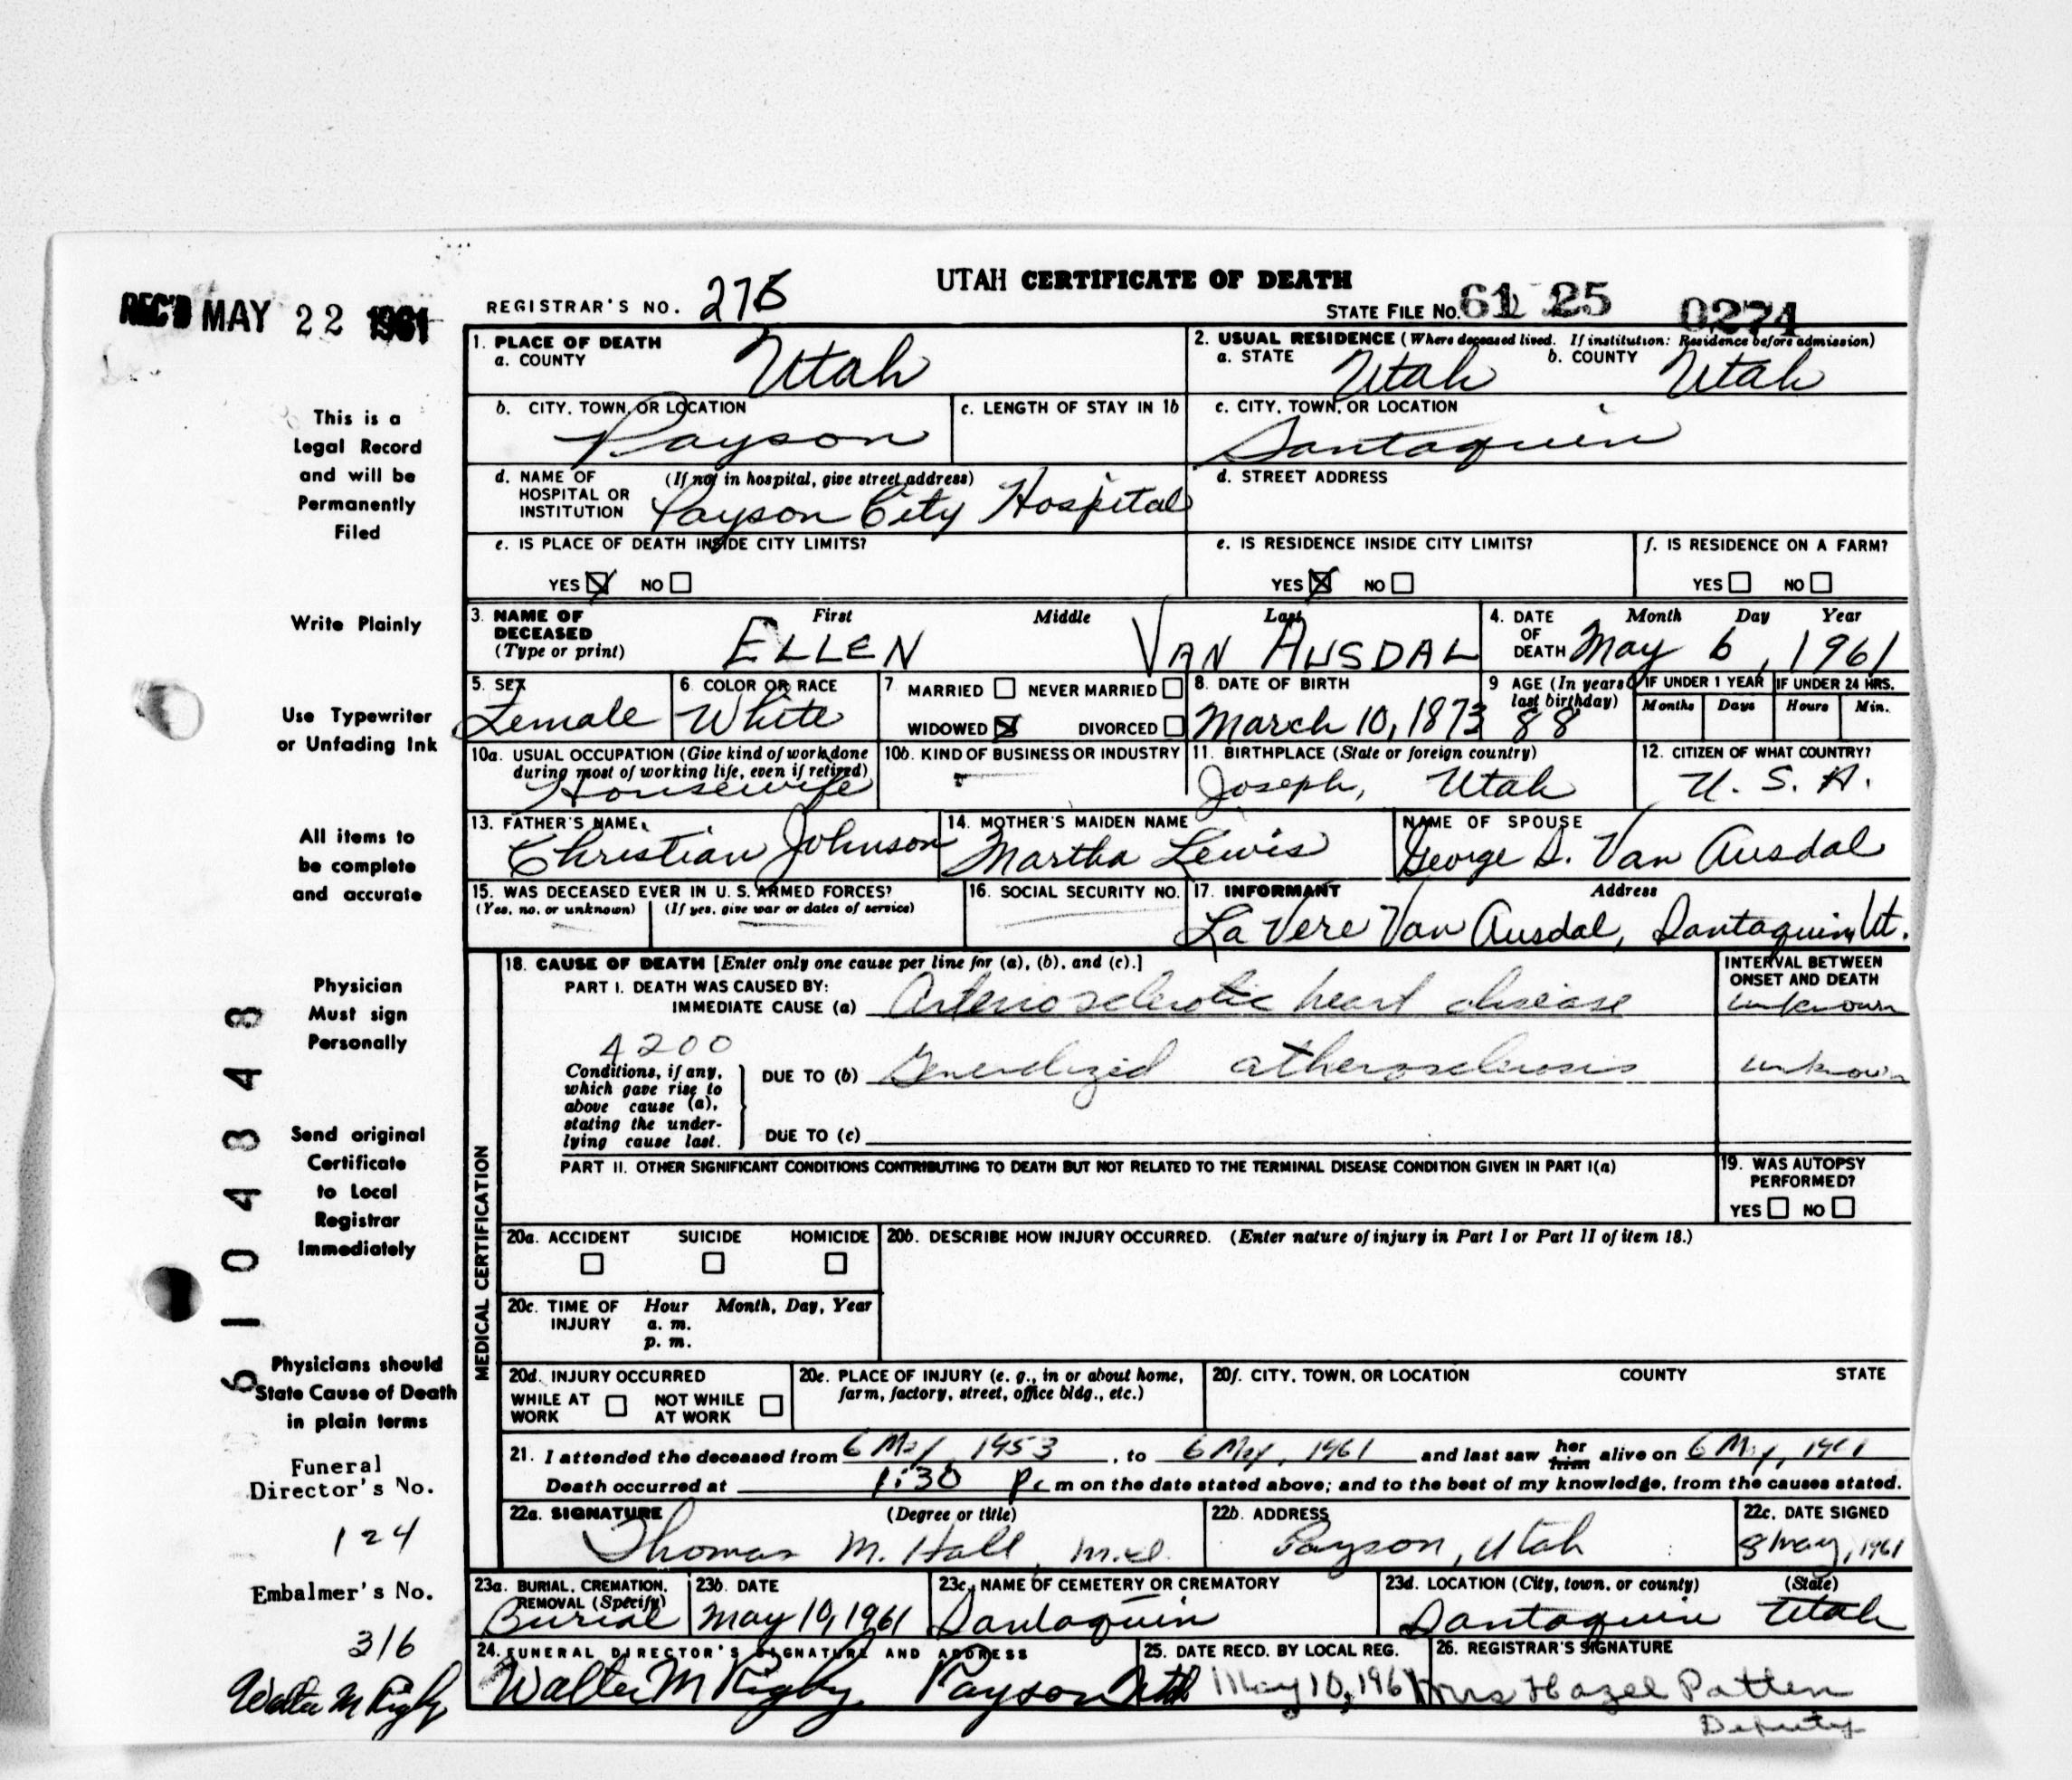 UTAH CERTIFICATE OF DEATH
REC'D MAY 22 1961
REGISTRAR'S NO. 275
STATE FILE NO. 61 25 0274
1. PLACE OF DEATH
a. COUNTY Utah
2. USUAL RESIDENCE (Where deceased lived. If institution: Residence before admission)
a. STATE Utah b. COUNTY Utah
b. CITY, TOWN, OR LOCATION
Payson
c. LENGTH OF STAY IN 1b
c. CITY, TOWN, OR LOCATION
Santaquin
d. NAME OF HOSPITAL OR INSTITUTION (If not in hospital, give street address)
Payson City Hospital
d. STREET ADDRESS
e. IS PLACE OF DEATH INSIDE CITY LIMITS?
YES NO
e. IS RESIDENCE INSIDE CITY LIMITS?
YES NO
f. IS RESIDENCE ON A FARM?
YES NO
3. NAME OF DECEASED (Type or print)
First Middle Last
ELLEN VAN AUSDAL
4. DATE OF DEATH Month Day Year
May 6, 1961
5. SEX
Female
6. COLOR OR RACE
White
7 MARRIED NEVER MARRIED
WIDOWED DIVORCED
8. DATE OF BIRTH
March 10, 1873
9 AGE (In years last birthday)
88
IF UNDER 1 YEAR
Months Days
IF UNDER 24 HRS.
Hours Min.
10a. USUAL OCCUPATION (Give kind of work done during most of working life, even if retired)
Housewife
10b. KIND OF BUSINESS OR INDUSTRY
11. BIRTHPLACE (State or foreign country)
Joseph, Utah
12. CITIZEN OF WHAT COUNTRY?
U. S. A.
13. FATHER'S NAME
Christian Johnson
14. MOTHER'S MAIDEN NAME
Martha Lewis
NAME OF SPOUSE
George D. Van Ausdal
15. WAS DECEASED EVER IN U. S. ARMED FORCES?
(Yes, no, or unknown) (If yes, give war or dates of service)
16. SOCIAL SECURITY NO.
17. INFORMANT Address
La Vere Van Ausdal, Santaquin, Ut.
MEDICAL CERTIFICATION
18. CAUSE OF DEATH [Enter only one cause per line for (a), (b), and (c).]
PART I. DEATH WAS CAUSED BY:
IMMEDIATE CAUSE (a) Arteriosclerotic heart disease
INTERVAL BETWEEN ONSET AND DEATH
unknown
4200
Conditions, if any, which gave rise to above cause (a), stating the underlying cause last.
DUE TO (b) Generalized atherosclerosis
unknown
DUE TO (c)
PART II. OTHER SIGNIFICANT CONDITIONS CONTRIBUTING TO DEATH BUT NOT RELATED TO THE TERMINAL DISEASE CONDITION GIVEN IN PART I(a)
19. WAS AUTOPSY PERFORMED?
YES NO
20a. ACCIDENT SUICIDE HOMICIDE
20b. DESCRIBE HOW INJURY OCCURRED. (Enter nature of injury in Part I or Part II of item 18.)
20c. TIME OF INJURY Hour Month, Day, Year
a. m.
p. m.
20d. INJURY OCCURRED
WHILE AT WORK NOT WHILE AT WORK
20e. PLACE OF INJURY (e. g., in or about home, farm, factory, street, office bldg., etc.)
20f. CITY, TOWN, OR LOCATION COUNTY STATE
21. I attended the deceased from 6 May, 1953, to 6 May, 1961 and last saw her him alive on 6 May, 1961
Death occurred at 1:30 P. m on the date stated above; and to the best of my knowledge, from the causes stated.
22a. SIGNATURE (Degree or title)
Thomas M. Hall, M.D.
22b. ADDRESS
Payson, Utah
22c. DATE SIGNED
8 May, 1961
23a. BURIAL, CREMATION, REMOVAL (Specify)
Burial
23b. DATE
May 10, 1961
23c. NAME OF CEMETERY OR CREMATORY
Santaquin
23d. LOCATION (City, town, or county) (State)
Santaquin Utah
24. FUNERAL DIRECTOR'S SIGNATURE AND ADDRESS
Walter M Rigby Payson Utah
25. DATE RECD. BY LOCAL REG.
May 10, 1961
26. REGISTRAR'S SIGNATURE
Mrs Hazel Patten
Deputy
This is a
Legal Record
and will be
Permanently
Filed
Write Plainly
Use Typewriter
or Unfading Ink
All items to
be complete
and accurate
Physician
Must sign
Personally
Send original
Certificate
to Local
Registrar
Immediately
Physicians should
State Cause of Death
in plain terms
Funeral
Director's No.
124
Embalmer's No.
316
Walter M Rigby
6104848